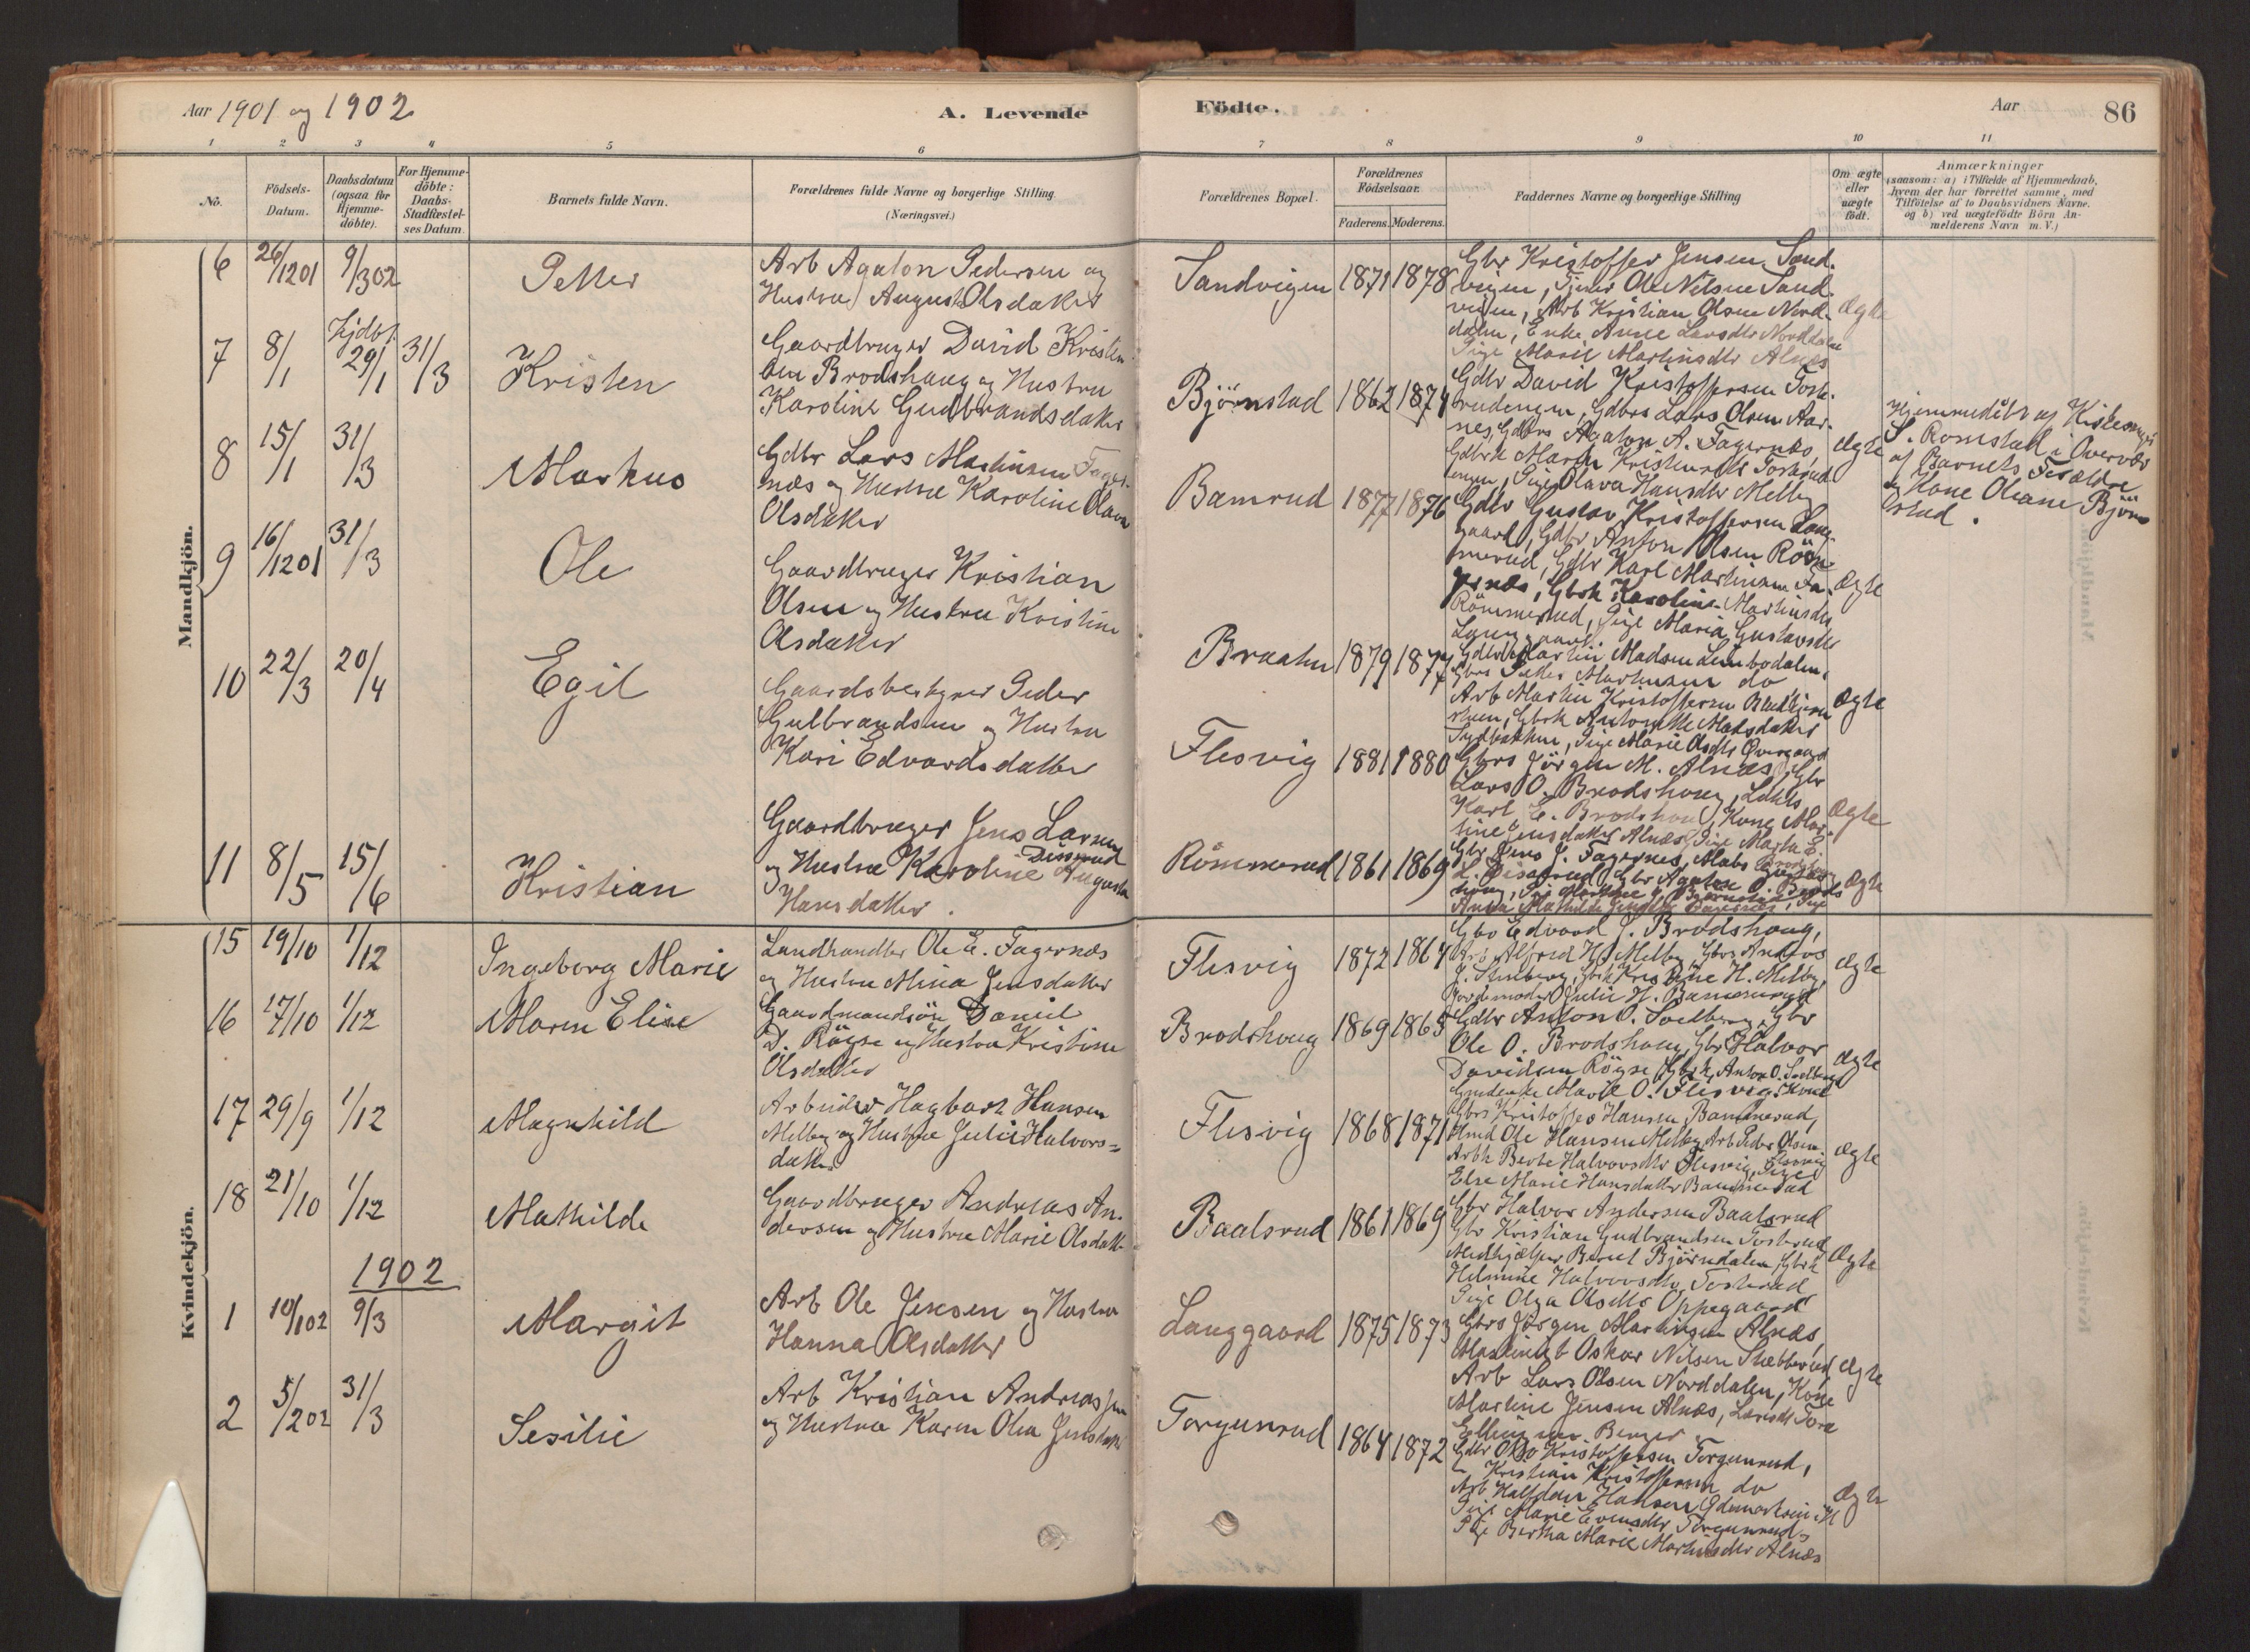 Aar 1901 og 1902
A. Levende
Födte.
Aar
86
1 2 3 4 5 6 7 8 9 10 11
No.
Födsels-
Datum.
Daabsdatum
(ogsaa for
Hjemme-
döbte).
For Hjemme-
döbte:
Daabs-
Stadfæstel-
ses Datum.
Barnets fulde Navn.
Forældrenes fulde Navne og borgerlige Stilling.
(Næringsvei.)
Forældrenes Bopæl.
Forældrenes
Födselsaar.
Faderens. Moderens.
Faddernes Navne og borgerlige Stilling
Om ægte
eller
uægte
födt.
Anmærkninger
(saasom: a) i Tilfælde af Hjemmedaab,
hvem der har forrettet samme, med
Tilföielse af to Daabsvidners Navne.
og b) ved uægtefödte Börn An-
melderens Navn m. V.)
Mandkjön.
6 26/12 01 9/3 02
Petter
Arb Agaton Pedersen og
Hustru August Olsdatter
Sandvigen 1871 1878
Gbr Kristoffer Jensen Sand-
vigen, Tjener Ole Nilsen Sand-
vigen, Arb Kristian Olsen Nord-
dalen, Enke Anne Larsdtr Norddalen
Pige Marie Martinsdtr Alnæs
Ægte
7 8/1 Hjdbt. 29/1 31/3
Kristen
Gaardbruger David Kristen-
sen Brodshaug og Hustru
Karoline Gudbrandsdatter
Bjørnstad 1862 1874
Gdbr David Kristoffersen Tosk-
rudengen, Gdbrs Lars Olsen Aar-
nes, Gdbrs Agaton A. Fagernæs,
Gdbrk Maren Kristensdtr Toskrud-
engen, Pige Olava Hansdtr Melby
Ægte
Hjemmedöbt af Kirkesanger
S. Romstad i Overvær
af Barnets Forældre
og Kone Oleane Bjørn-
stad.
8 15/1 31/3
Markus
Gdbr Lars Martinsen Fager-
næs og Hustru Karoline Olava
Olsdatter
Bamrud 1877 1876
Gdbr Gustav Kristoffersen Lang-
gaard, Gdbr Anton Olsen Röm-
merud, Gdbr Karl Martinsen Fa-
gernæs, Gbrk Karoline Martinsdtr
Römmerud, Pige Maria Gustavsdtr
Langgaard
Ægte
9 16/12 01 31/3
Ole
Gaardbruger Kristian
Olsen og Hustru Kristine
Olsdatter
Braaten 1879 1874
Gdbr Martin Madsen Lembodalen,
Gbrs Petter Martinsen do
Arb Martin Kristoffersen
Gbrk Antonette Madsdatter
Pige Marie Olsdtr Overgaard
Ægte
10 22/3 20/4
Egil
Gaardsbestyrer Peder
Gulbrandsen og Hustru
Kari Edvardsdatter
Flesvig 1881 1880
Gbrs Jörgen M. Alnæs, Gbr
Lars O. Brodshaug, Ldhdl
Karl E. Brodshaug, Kone Mar-
tine Jensdatter Alnæs, Pige Marta E.
Brodshaug
Ægte
11 8/5 15/6
Kristian
Gaardbruger Jens Larsen
Disserud
og Hustru Karoline Augusta
Hansdatter.
Römmerud 1861 1869
Gbr Jens J. Fagernes,
L. Disserud, Gbr Agaton O. Brods-
haug,
Anna Mathilde
Ægte
Kvindekjön.
15 19/10 1/12
Ingeborg Marie
Landhandler Ole E. Fagernæs
og Hustru Mina Jensdatter
Flesvig 1872 1864
Gbr Edvard J. Brodshaug,
Arb Alfred H. Melby, Gbrs Anders
J. Stenberg, Gbrk Kristine H. Melby,
Jordemoder Julie H. Bamerud
Ægte
16 17/10 1/12
Maren Elise
Gaardmandsön Daniel
D. Röyse og Hustru Kristine
Olsdatter
Brodshaug 1869 1865
Gdbr Anton O. Solberg, Gbr
Ole O. Brodshaug, Gbr Halvor
Davidsen Röyse, Gbrk Anton O. Solberg
Marie O. Flesvig, Kone
Ægte
17 29/9 1/12
Magnhild
Arbeider Hagbart Hansen
Melby og Hustru Julie Halvors-
datter
Flesvig 1868 1871
Gbrs Kristoffer Hansen Bammerud,
Ole Hansen Melby, Arb Peder Olsen
Flesvig
Arbk Berte Halvorsdtr Flesvig, Pige
Else Marie Hansdatter Bammerud
Ægte
18 21/10 1/12
Mathilde
Gaardbruger Andreas An-
dersen og Hustru Marie Olsdatt.
Baalsrud 1861 1869
Gbr Halvor Andersen Baalsrud
Gbr Kristian Gudbrandsen Toskrud
Medhjælper Bernt Björndalen, Gbrk
Helmine Halvorsdtr Toskerud
Pige Olga Olsdtr Oppegaard
Ægte
1902
1 10/1 02 9/3
Margit
Arb Ole Jensen og Hustru
Hanna Olsdatter
Langgaard 1875 1873
Gbrs Jörgen Martinsen Alnæs,
Oskar Nilsen Stubberud
Arb Lars Olsen Norddalen, Kone
Martine Jensen Alnæs, Tora
Berger
Ægte
2 5/2 02 31/3
Sesilie
Arb Kristian Andreassen
og Hustru Karen Olea Jensdatter
Torgunrud 1864 1872
Gdbr Ole Kristoffersen Torgunrud,
" Kristian Kristoffersen do
Arb Halfdan Hansen
Pige Marie Evensdtr Torgunrud,
Pige Bertha Marie Martinsdtr Alnæs
Ægte